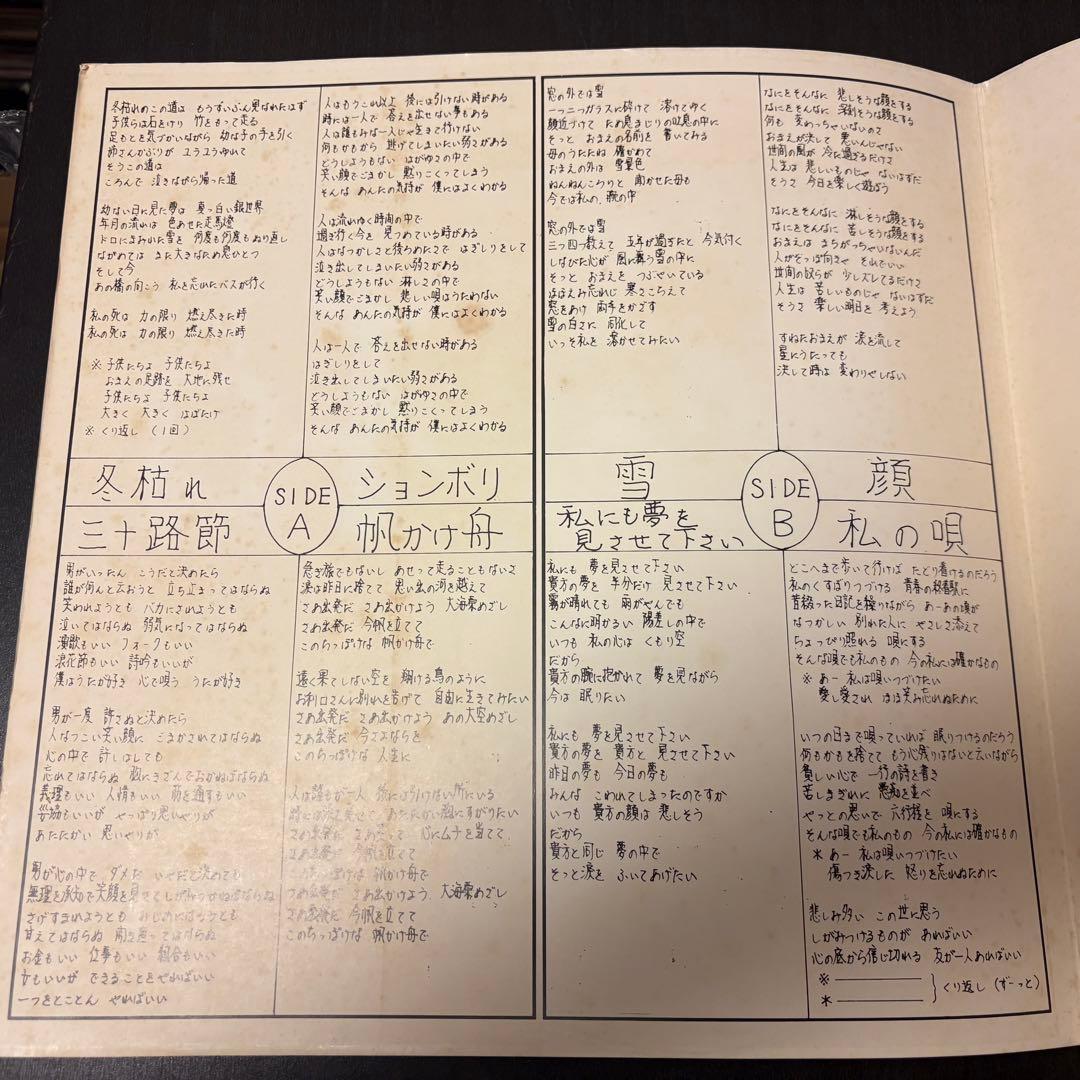 冬枯れのこの道は もうずいぶん見なれたはず
子供らは石をけり 竹をもって走る
足もとを気づかいながら 幼な子の手を引く
姉さんかぶりが ユラユラゆれて
そうこの道は
ころんで 泣きながら帰った道
幼ない日に見た夢は 真っ白い銀世界
年月の流れは 色あせた走馬燈
ドロにまみれた雪を 何度も何度もぬり直し
ながめては また大きなため息ひとつ
そして今
あの橋の向こう 私を忘れたバスが行く
私の死は 力の限り 燃え尽きた時
私の死は 力の限り 燃え尽きた時
※ 子供たちよ 子供たちよ
おまえの足跡を 大地に残せ
子供たちよ 子供たちよ
大きく 大きく はばたけ
※ くり返し (1回)
人はもうこれ以上 後には引けない時がある
時には一人で 答えを出せない事もある
人は誰もみな一人じゃ生きて行けない
何もかもから 逃げてしまいたい弱さがある
どうしようもない はがゆさの中で
笑い顔でごまかし 黙りこくってしまう
そんな あんたの気持が 僕にはよくわかる
人は流れゆく時間の中で
過ぎ行く今を 見つめている時がある
人はなつかしさと後ろめたさで はぎしりをして
泣き出してしまいたい弱さがある
どうしようもない 淋しさの中で
笑い顔でごまかし 悲しい唄はうたわない
そんな あんたの気持が 僕にはよくわかる
人は一人で 答えを出せない時がある
はぎしりをして
泣き出してしまいたい弱さがある
どうしようもない はがゆさの中で
笑い顔でごまかし 黙りこくってしまう
そんな あんたの気持が 僕にはよくわかる
冬枯れ
ションボリ
SIDE
A
三十路節
帆かけ舟
男がいったん こうだと決めたら
誰が何んと云おうと 立ち止まってはならぬ
笑われようとも バカにされようとも
泣いてはならぬ 弱気になってはならぬ
演歌もいい フォークもいい
浪花節もいい 詩吟もいいが
僕はうたが好き 心で唄う うたが好き
男が一度 許さぬと決めたら
人なつこい笑い顔に ごまかされてはならぬ
心の中で 許しはしても
忘れてはならぬ 胸にきざんでおかねばならぬ
義理もいい 人情もいい 筋を通すもいい
妥協もいいが やっぱり思いやりが
あたたかい 思いやりが
男が心の中で ダメだ いやだと決めても
無理を承知で笑顔を見せてしがみつかねばならぬ
さげすまれようとも みじめにはなっとも
甘えてはならぬ 開き直ってはならぬ
お金もいい 仕事もいい 都合もいい
女もいいが できることをやればいい
一つをとことん やればいい
急ぎ旅でもないし あせって走ることもないさ
涙は昨日に捨てて 思い出の河を越えて
さあ出発だ さあ出かけよう 大海栗めざし
さあ出発だ 今帆を立てて
このちっぽけな 帆かけ舟で
遠く果てしない空を 翔ける鳥のように
お利口さんに別れを告げて 自由に生きてみたい
さあ出発だ さあ出かけよう あの大空めざし
さあ出発だ 今さよならを
このちっぽけな 人生に
人は誰もが一人 後には引けない所にいる
あたたかい胸にすがりたい
さあ出発だ 心にムチを当てて
さあ出発だ 今帆を立てて
このちっぽけな 帆かけ舟で
さあ出発だ さあ出かけよう 大海栗めざし
さあ出発だ 今帆を立てて
このちっぽけな 帆かけ舟で
窓の外では雪
一つ二つガラスに砕けて 溶けてゆく
顔近づけて ため息まじりの吐息の中に
そっと おまえの名前を 書いてみる
母のうたたね 確かめて
おまえの外は 雪景色
ねんねんころりと 聞かせた母も
今では私の 腕の中
窓の外では雪
三つ四つ数えて 五年が過ぎたと 今気付く
しなびた心が 風に舞う雪の中に
そっと おまえを つぶやいている
ほほえみ忘れじ 寒さこらえて
窓をあけ 両手をかざす
雪の白さに 同化して
いっそ私を 溶かせてみたい
なにをそんなに 悲しそうな顔をする
なにをそんなに 深刻そうな顔をする
何も 変わっちゃいないので
おまえが決して 悪いんじゃない
世間の風が 冷た過ぎるだけさ
人生は 悲しいものじゃ ないはずだ
そうさ 今日を楽しく遊ぼう
なにをそんなに 淋しそうな顔をする
なにをそんなに 苦しそうな顔をする
おまえは まちがっちゃいないんだ
人がそっぽ向きゃ それでいい
世間の奴らが 少しズレてるだけさ
人生は 苦しいものじゃ ないはずだ
そうさ 楽しい明日を 考えよう
すねたおまえが 涙を流して
星にうたっても
決して時は 変わりゃしない
雪
顔
SIDE
B
私にも夢を
見させて下さい
私の唄
私にも 夢を見させて下さい
貴方の夢を 半分だけ 見させて下さい
霧が晴れても 雨がやんでも
こんなに明かるい 陽差しの中で
いつも 私の心は くもり空
だから
貴方の腕に抱かれて 夢を見ながら
今は 眠りたい
私にも 夢を見させて下さい
貴方の夢を 貴方と 見させて下さい
昨日の夢も 今日の夢も
みんな こわれてしまったのですか
いつも 貴方の顔は 悲しそう
だから
貴方と同じ 夢の中で
そっと涙を ふいてあげたい
どこへまで歩いて行けば たどり着けるのだろう
私のくすぼりつづける 青春の終着駅に
昔綴った日記を繰りながら あーあの頃が
なつかしい 別れた人に やさしさ添えて
ちょっぴり照れる 唄にする
そんな唄でも私のもの 今の私には確かなもの
※ あー 私は唄いつづけたい
愛し愛され ほほ笑み忘れぬために
いつの日まで唄っていれば 眠りつけるのだろう
何もかもを捨てて もう心残りはないと云いながら
貧しい心で 一行の詩を書き
苦しまぎれに 愚痴を並べ
やっとの思いで 六行程を 唄にする
そんな唄でも私のもの 今の私には確かなもの
＊ あー 私は唄いつづけたい
傷つき涙した 怒りを忘れぬために
悲しみ多い この世に思う
しがみつけるものが あればいい
心の底から信じ切れる 友が一人あればいい
※
＊
くり返し (ずーっと)